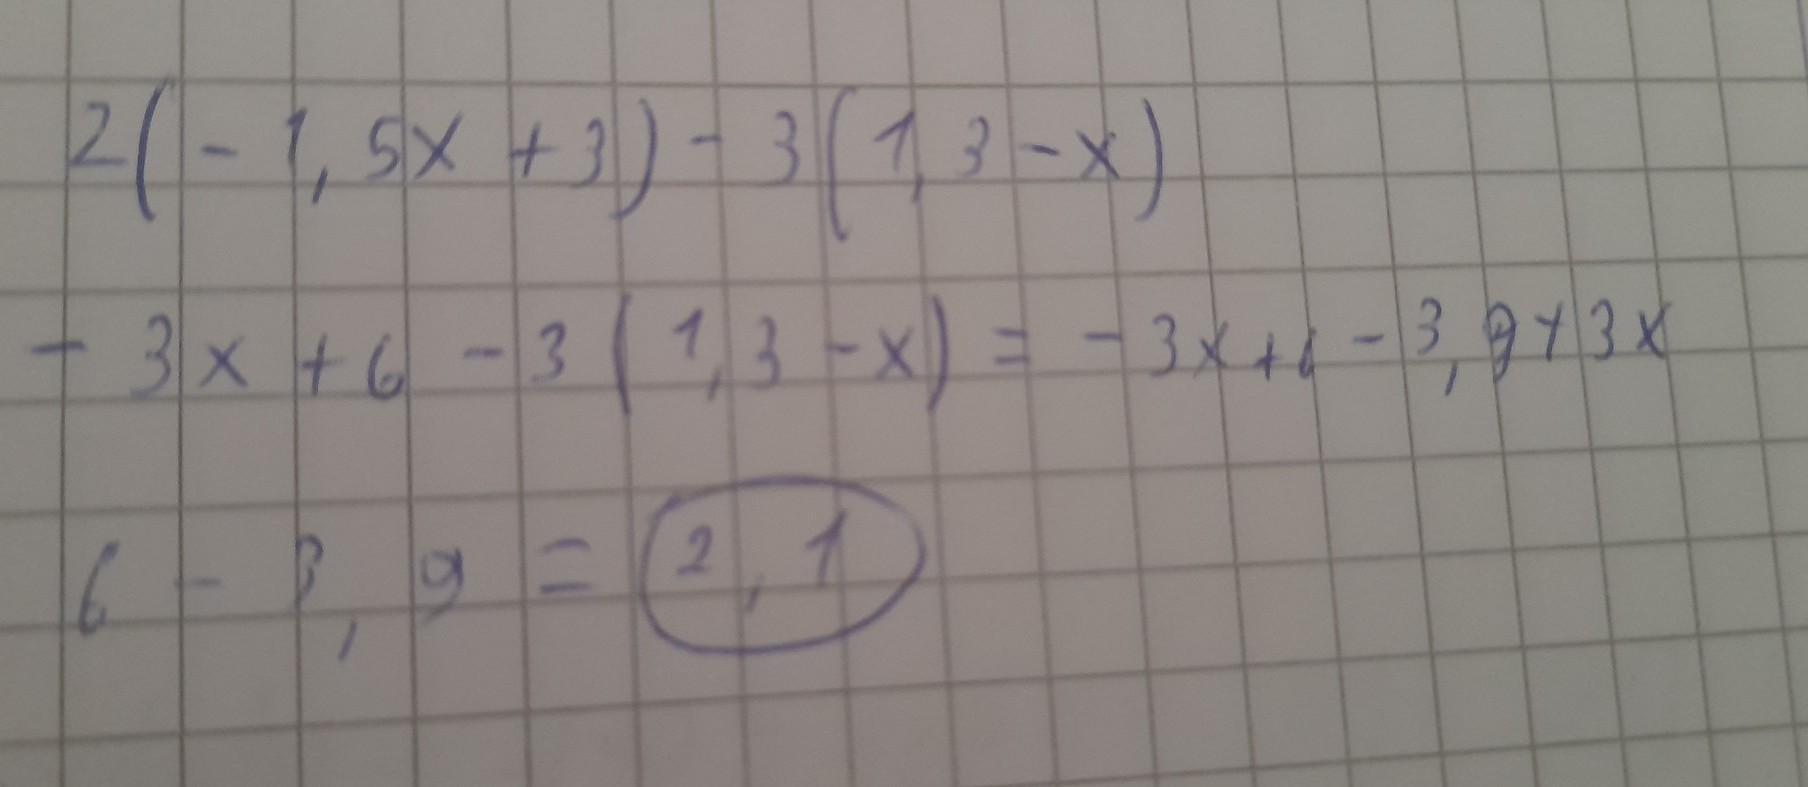 2(-1,5x+3)-3(1,3-x)
-3x+6-3(1,3-x)=-3x+6-3,9+3x
6-3,9=2,1